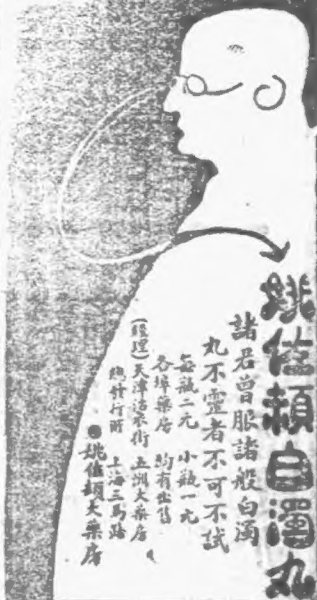 姚佐頓白濁丸
諸君曾服諸般白濁
丸不靈者不可不試
每瓶二元　小瓶一元
各埠藥房　均有出售
(經理)天津法界街　五洲大藥房
總發行所　上海三馬路
●姚佐頓大藥房